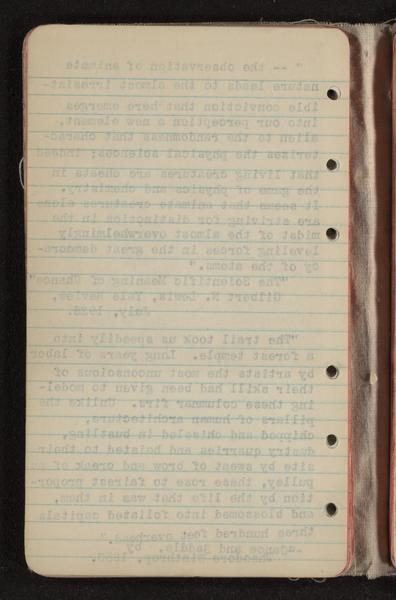 " -- the observation of animate
nature leads to the almost irresist-
ible conviction that here emerges
into our perception a new element,
alien to the randomness that charac-
terizes the physical sciences; indeed
that living creatures are cheats in
the game of physics and chemistry.
It seems that animate creatures alone
are striving for distinction in the
midst of the almost overwhelmingly
leveling forces in the great democra-
cy of the atoms."
"The Scientific Meaning of Chance"
Gilbert N. Lewis, Yale Review,
July, 1926.
"The trail took us speedily into
a forest temple. Long years of labor
by artists the most unconscious of
their skill had been given to model-
ing these columnar firs. Unlike the
pillars of human architecture,
chipped and chiseled in bustling,
dusty quarries and hoisted to their
site by sweat of brow and creak of
pulley, these rose to fairest propor-
tion by the life that was in them,
and blossomed into foliated capitals
three hundred feet overhead."
-Canoe and Saddle, by
Theodore Winthrop,